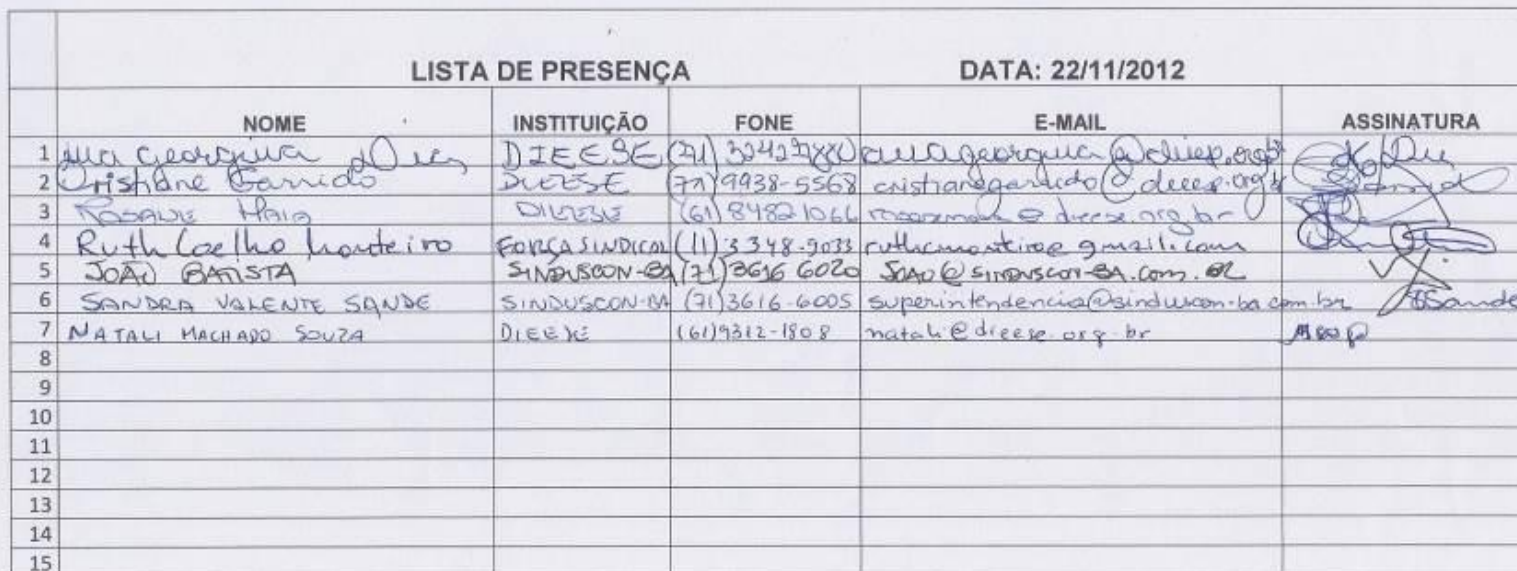 LISTA DE PRESENÇA DATA: 22/11/2012
NOME INSTITUIÇÃO FONE E-MAIL ASSINATURA
1 Ana Georgina Dias DIEESE (71) 3242-7880 anageorgina@dieese.org.br
2 Cristiane Garrido DIEESE (71) 9938-5568 cristianegarrido@dieese.org.br
3 Rosane Maia DIEESE (61) 84821066 @dieese.org.br
4 Ruth Coelho Monteiro FORÇA SINDICAL (11) 3348-9033 ruthcmonteiro@gmail.com
5 JOÃO BATISTA SINDUSCON-BA (71) 3616 6020 JOAO@SINDUSCON-BA.com.BR
6 SANDRA VALENTE SANDE SINDUSCON-BA (71) 3616-6005 superintendencia@sinduscon-ba.com.br Sande
7 NATALI MACHADO SOUZA DIEESE (61) 9312-1808 natali@dieese.org.br
8
9
10
11
12
13
14
15